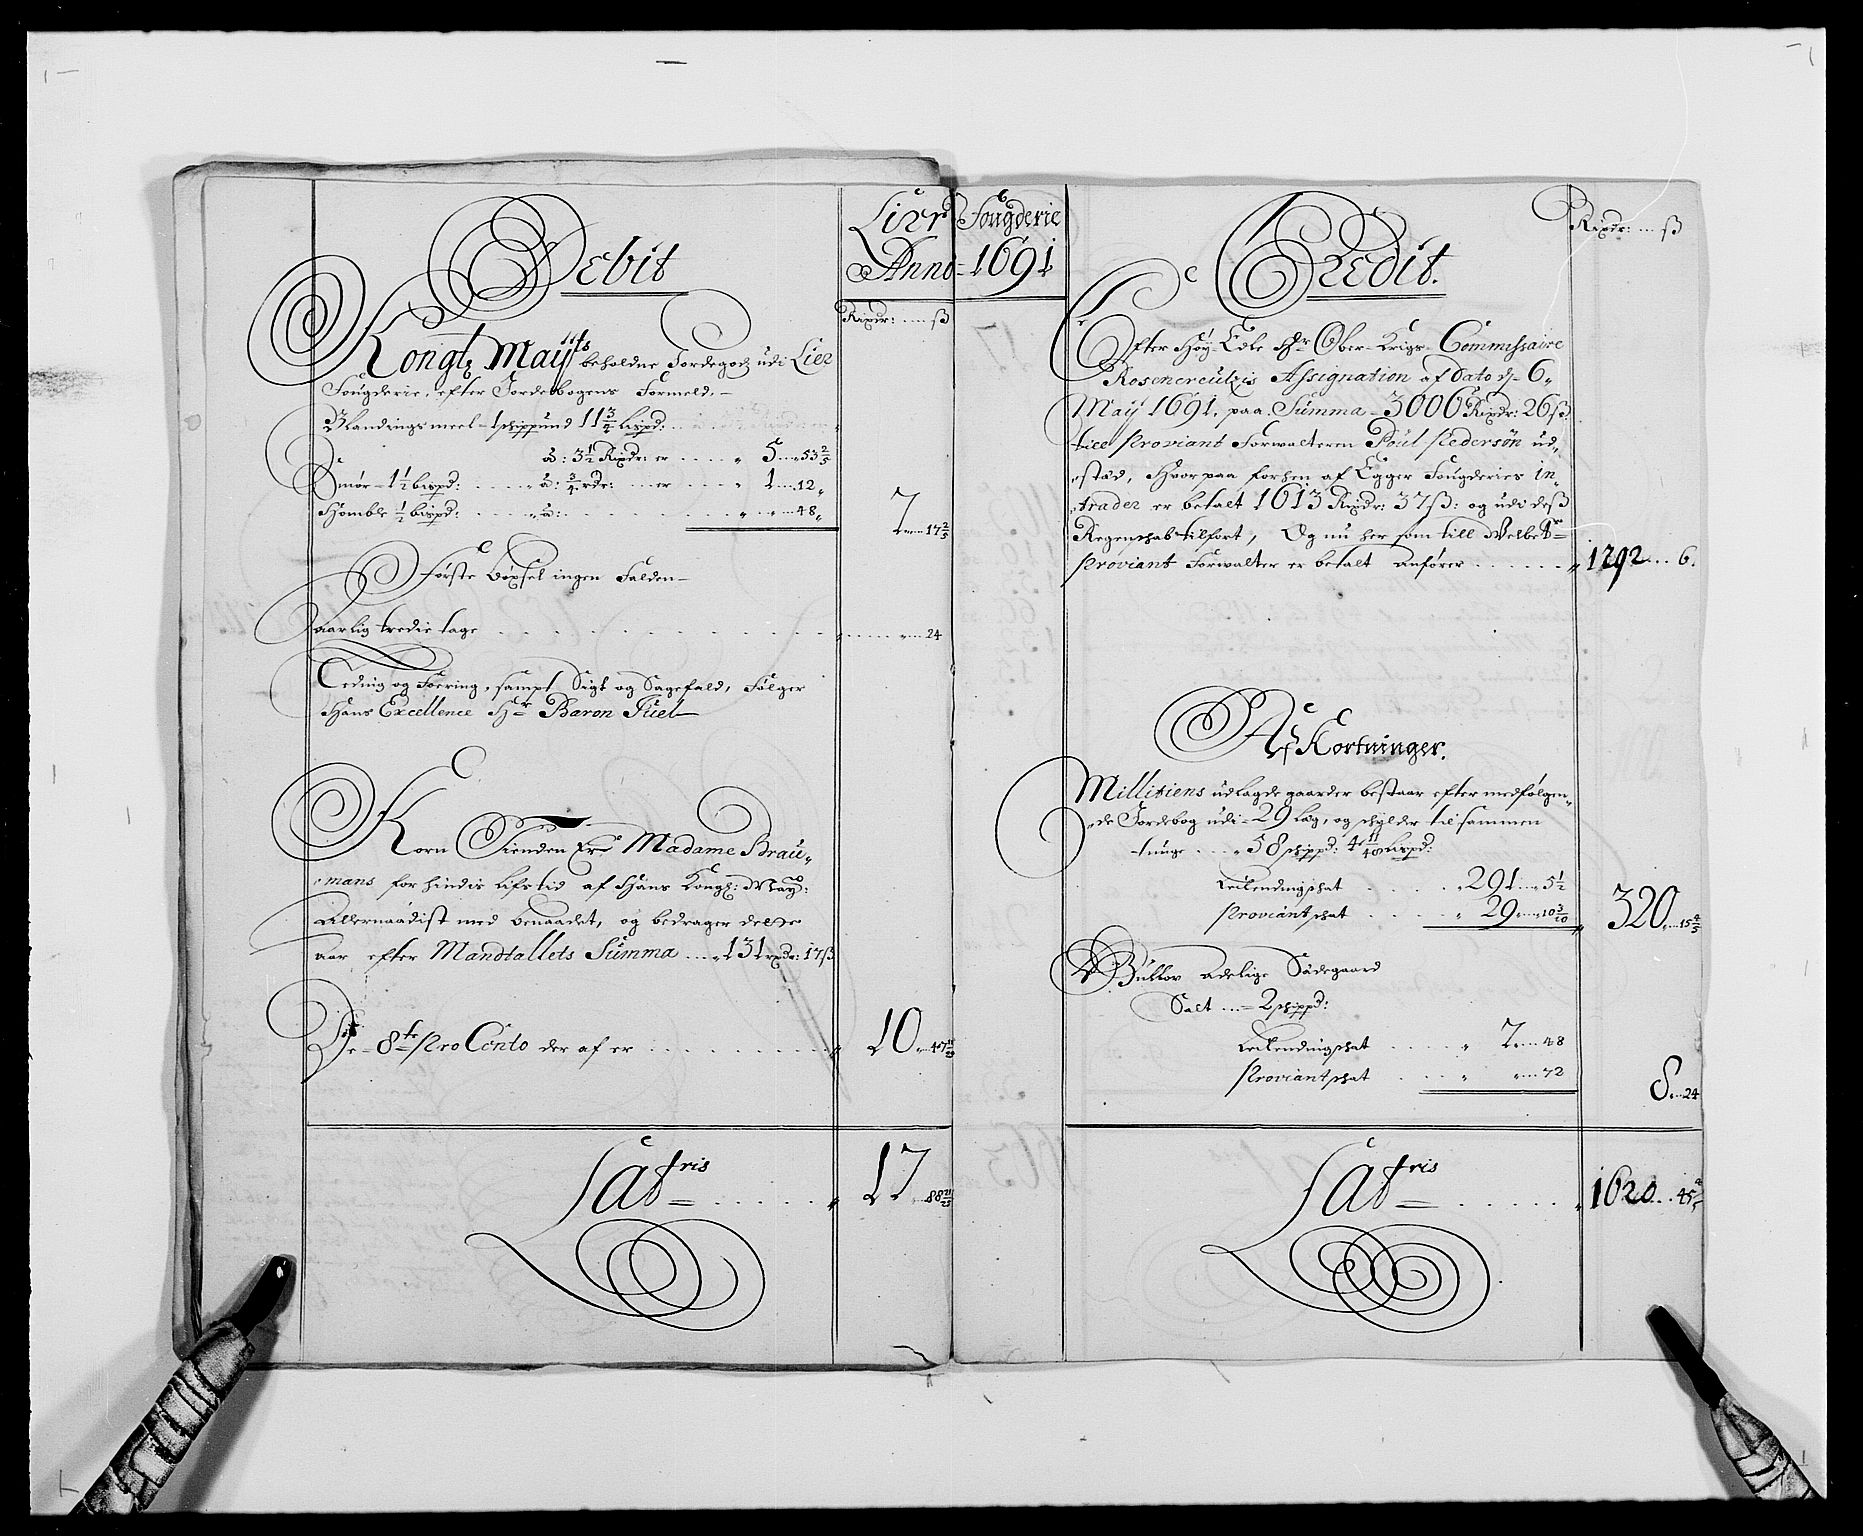 Debit
Lier Fougderie
Anno 1691
Rixdr: ... ß
Kongl: Mayts beholdne Jordegodz udi Lier
Fougderie, efter Jordebogens Formeld,
Blandingsmeel - 1 schippund 11 3/4 Lispd:
â: 3 1/2 Rixdr: er ..... 5 ... 53 2/5
Smør - 1 1/2 bispd: .... â: 3/4 rdr: ... er .... 1 ... 12
Homble 1/2 bispd: .... â: ........ 48
7 ... 17 2/5
Første bøxsel ingen Falden
Aarlig tredie tage ........ 24
Leding og Foering, sampt Sigt og Sagefald, Følger
Hans Excellence Hr Baron Juel
Korn Tienden Er Madame Brau,
mans for hindis Lifstid af Hans Kongl: May:
Allernaadist med benaadet, og bedrager dette
aar efter Mandtallets Summa .... 131 rxdr: 17 ß
De - 8te Pro Cento der af er ........ 10 ... 47
Latris ...... 17 ... 88
Credit.
Rixdr: ... ß
Efter Høy-Edle Hr Ober-Krigs-Commissaire
Rosencreutzis Assignation af Dato d- 6
May 1691, paa Summa - 3000 Rixdr: 26 ß
till Proviant Forwalteren Poul Pedersøn ud,
stæd, Hvorpaa forhen af Egger Fougderies in,
trader er betalt 1613 Rixdr: 37 ß: og udi deß
Regenschab tilført, Og nu her som till Welbetr
Proviant Forwalter er betalt anfører ...... 1292 ... 6
Af Kortninger.
Millitiens udlagde gaarder bestaar efter medfølgen,
de Jordebog udi - 29 Læg, og schylder tilsammen
tunge ... 58 schippd: 4 11/48 Lispd:
Leilendingschat ..... 291 ... 5 1/2
Proviantschat ..... 29 ... 10 3/10
320 ... 15 4/5
Adelige Sædegaard
Salt ... 2 schippd:
Leilendingschat ..... 7 ... 48
Proviantschat ..... 72
8 ... 24
Latris ...... 1620 ... 45